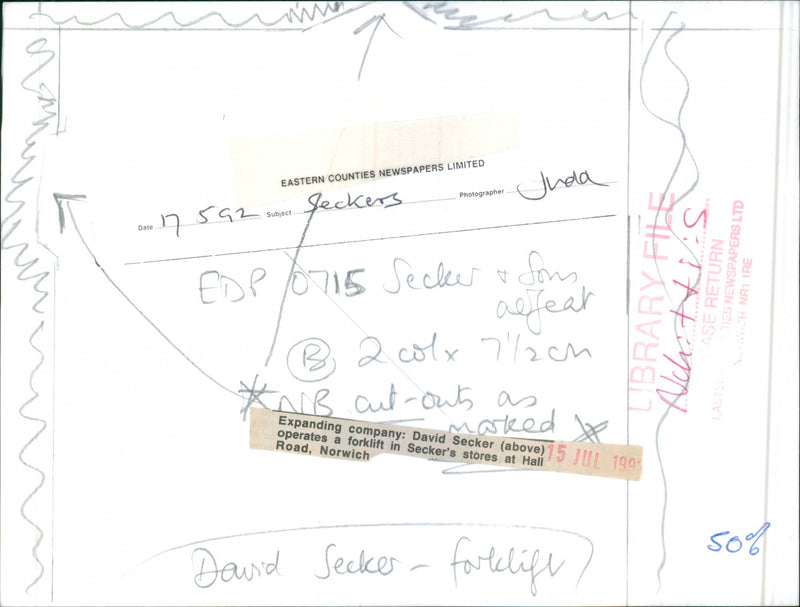 EASTERN COUNTIES NEWSPAPERS LIMITED
Date 17 5 92 Subject Seckers Photographer Judd
EDP 0715 Secker & Sons
adfeat
B 2 col x 7 1/2 cm
NB cut-outs as
marked
Expanding company: David Secker (above)
operates a forklift in Secker's stores at Hall
Road, Norwich
15 JUL 199
David Secker - forklift
50%
LIBRARY FILE
ASE RETURN
TIES NEWSPAPERS LTD
NR1 1RE